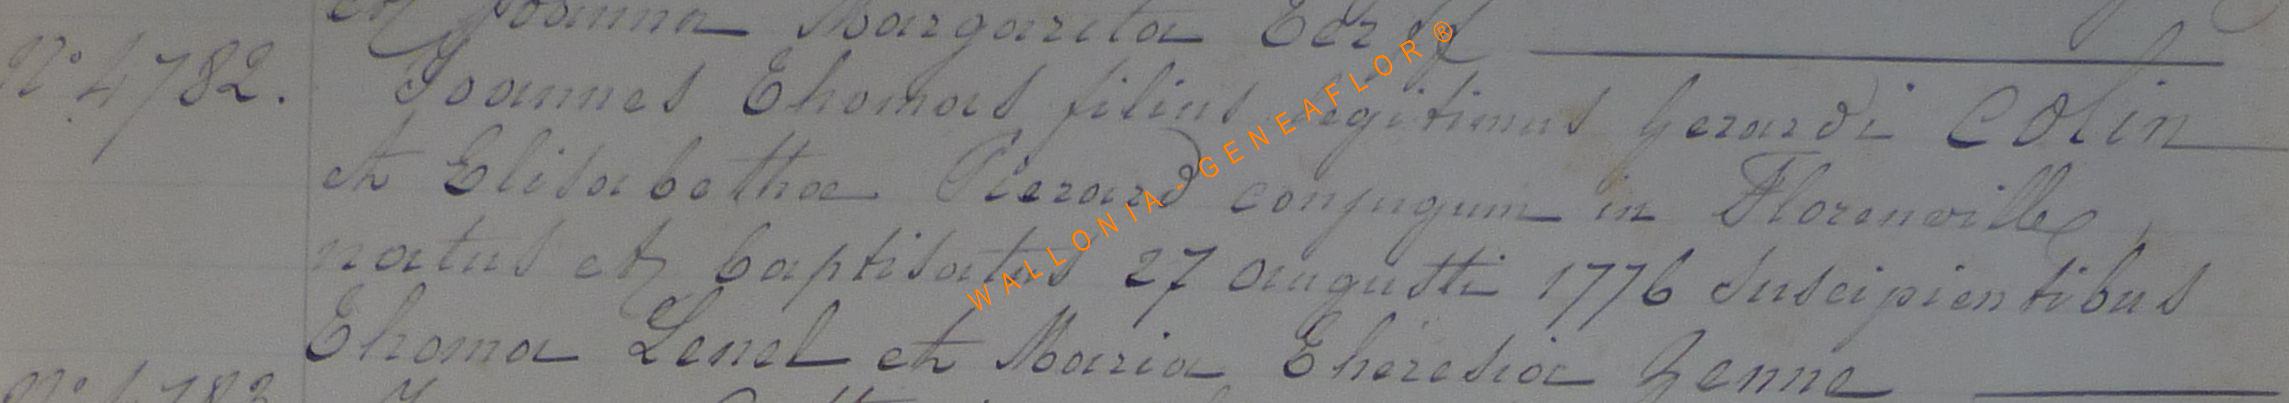 et Joanna Margarita
N° 4782. Joannes Thomas filius legitimus Gerardi Colin
et Elisabetha Pierard conjugum in Florenville,
natus et baptisatus 27 augusti 1776 suscipientibus
Thoma Lenel et Maria Theresia Henne
N° 4783
WALLONIA-GENEAFLOR®